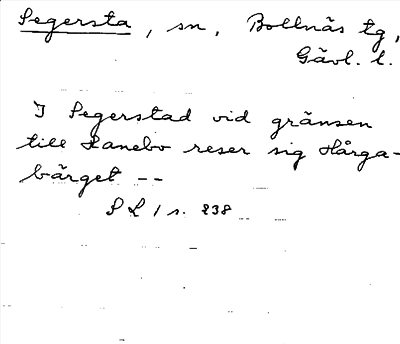 Segersta, sn, Bollnäs tg,
Gävl. l.
I Segerstad vid gränsen
till Hanebo reser sig Hårga-
bärget --
S L 1 s. 238